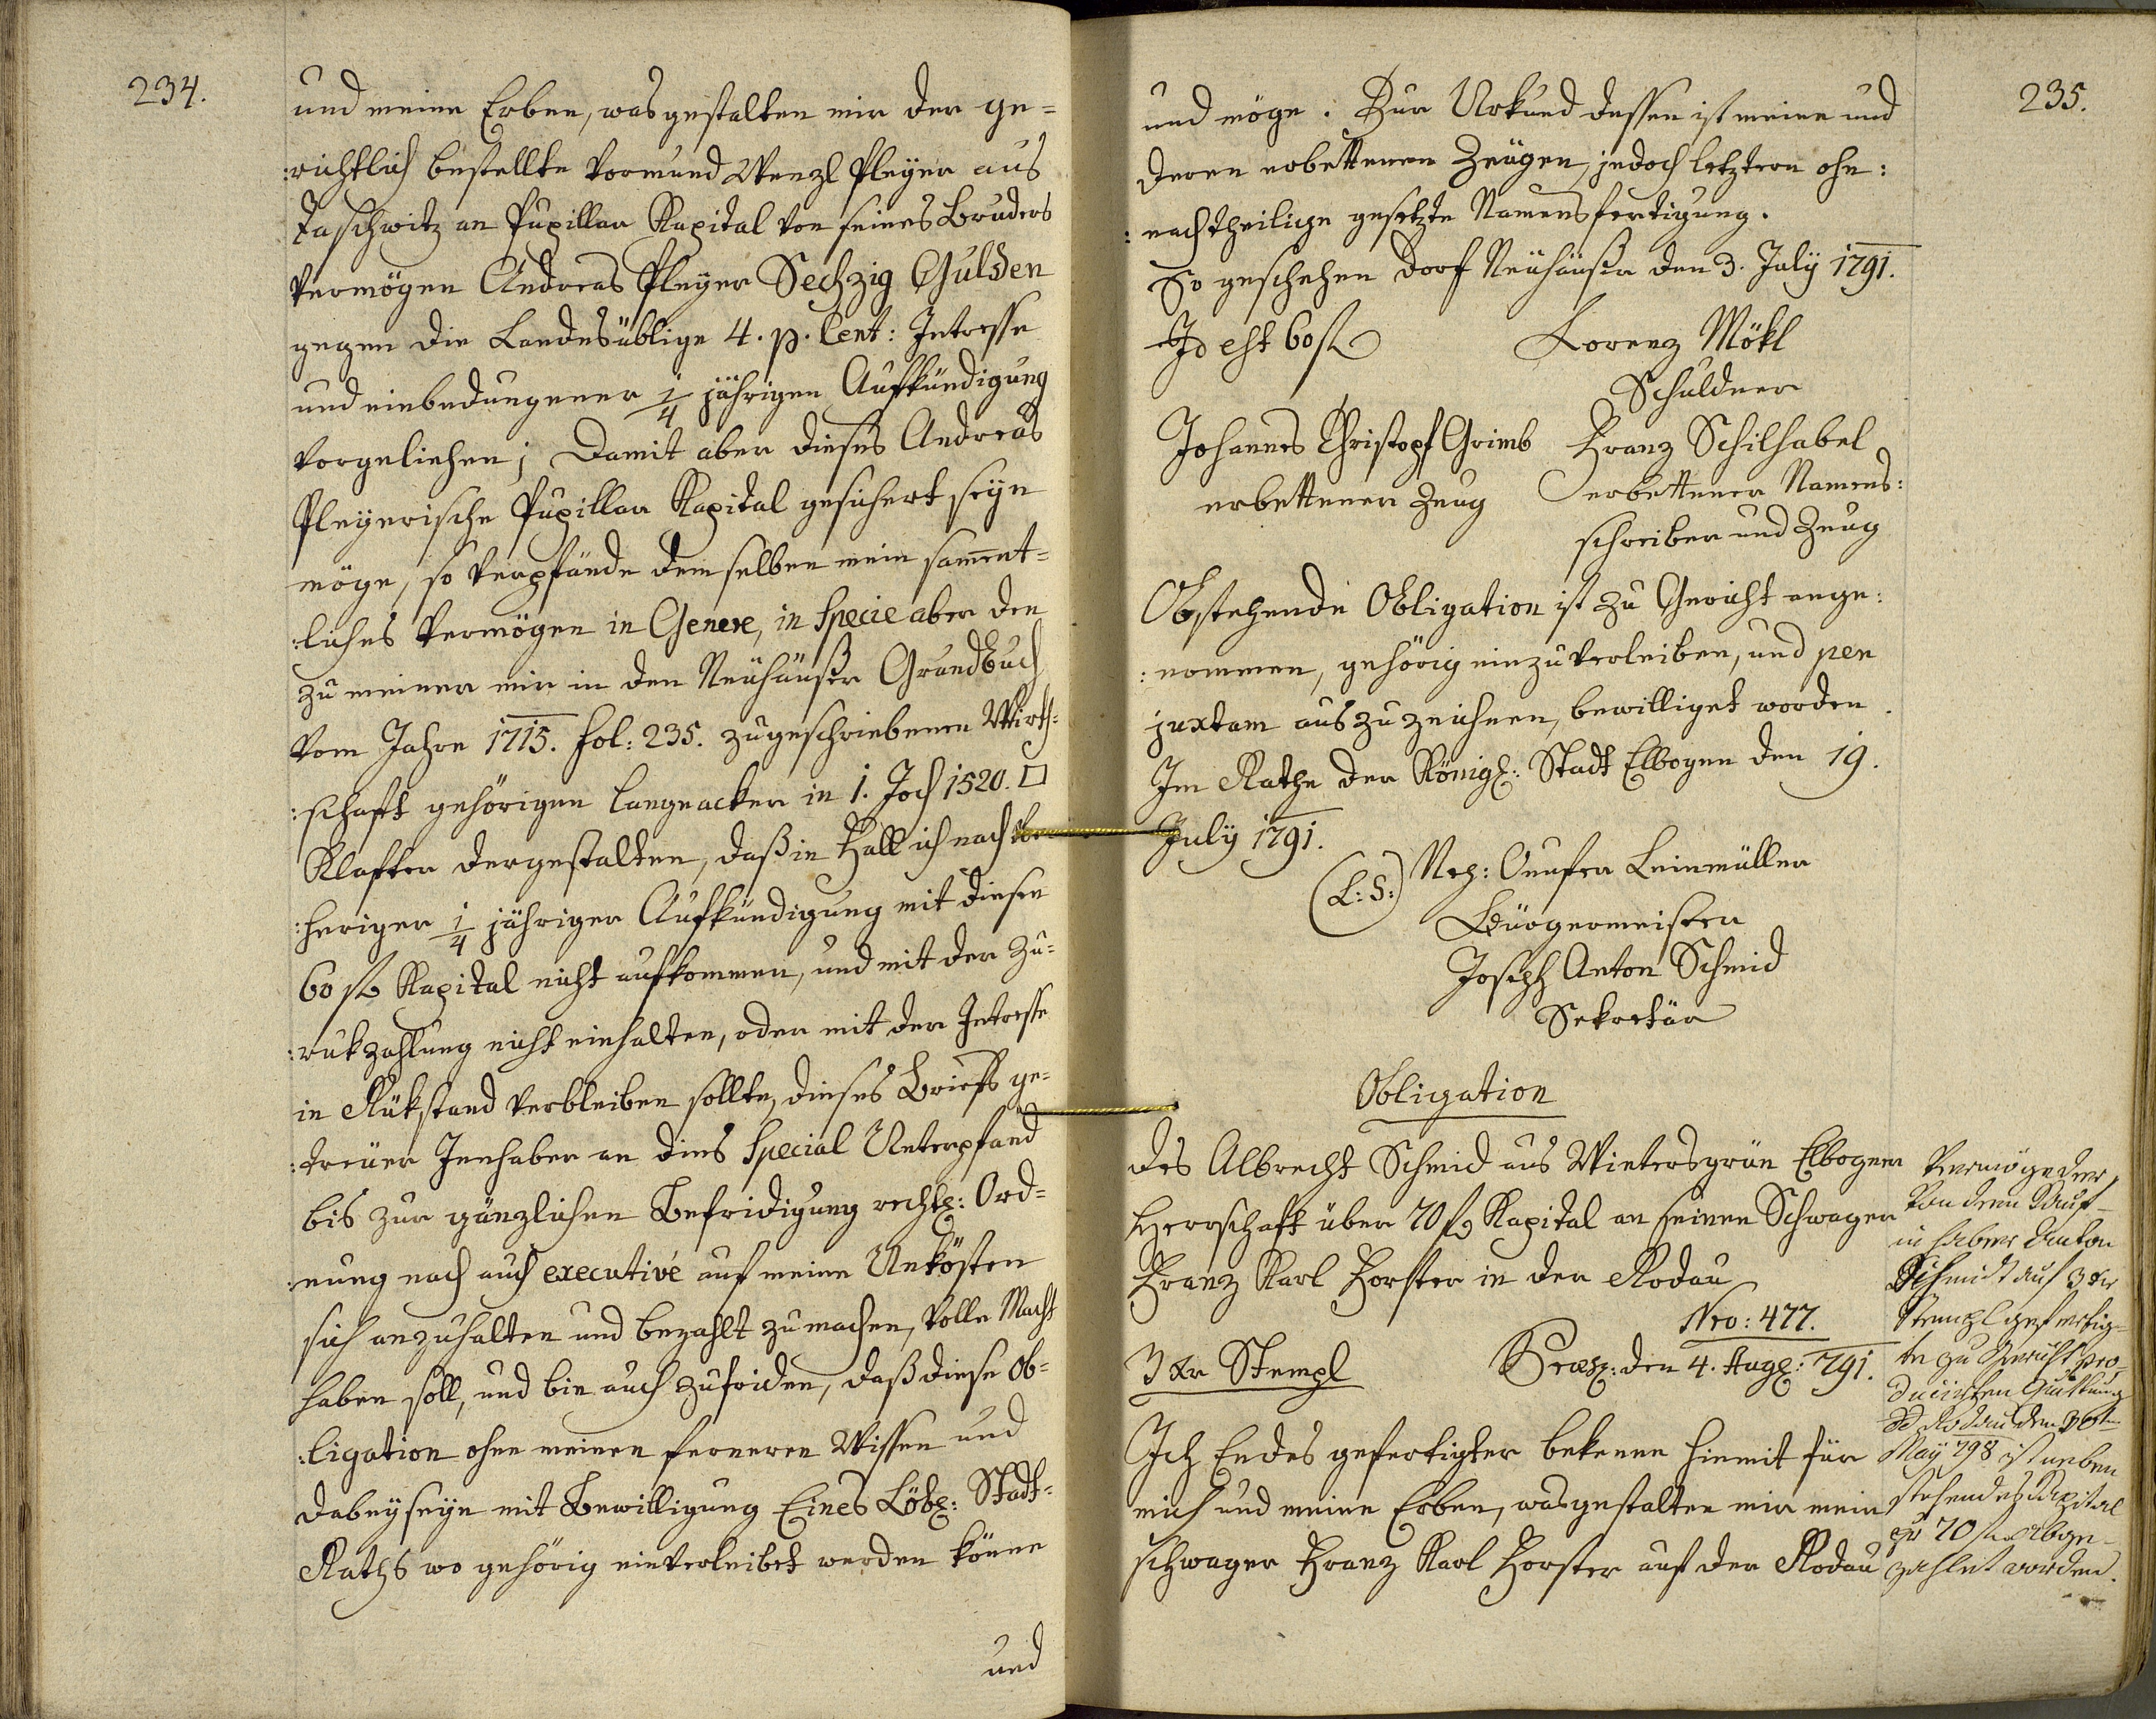 234.
und meine Erben, was gestalten mir der ge=
:richtlich bestellte Vormund Wenzl Pleyer aus
Taschwitz an Pupillar Kapital von seines Bruders
Vermögen Andreas Pleyer Sechzig Gulden
gegen die Landesüblige 4. p. Cent: Intresse
und einbedungener 1/4 jährigen Aufkündigung
vorgeliehen; Damit aber dieses Andreas
Pleyerische Pupillar Kapital gesichert seyn
möge, so verpfände demselben mein sam̅ent=
:liches Vermögen in Genere, in Specie aber den
zu meiner mir in den Neuhäußer Grundbuch
vom Jahre 1715. fol: 235. zugeschriebenen Wirth=
:schaft gehörigen langeacker in 1. Joch 1520. □
Klafter dergestalten, daß in Fall ich nach
:heriger 1/4 jähriger Aufkündigung mit diesen
60 fl Kapital nicht aufkommen, und mit der Zu=
:rukzahlung nicht einhalten, oder mit der Intresse
in Rükstand verbleiben sollte, dieses Briefs ge=
:treuer Innhaber an dies Special Unterpfand
bis zur gänzlichen Befridigung rechtl: Ord=
:nung nach auch executivé auf meine Unkösten
sich anzuhalten und bezahlt zu machen, volle Macht
haben soll, und bin auch zufriden, daß diese Ob=
:ligation ohne meinen ferneren Wissen und
dabeyseyn mit Bewilligung Eines Löbl: Stadt=
Raths wo gehörig einverleibet werden könne
und
235.
und möge. Zur Urkund dessen ist meine und
deren erbettenen Zeugen, jedoch letztern ohn:
:nachtheilige gesetzte Namensfertigung.
So geschehen Dorf Neuhäußer den 3. July 1791.
Id est 60 fl Lorenz Mökl
Schuldner
Johannes Christopf Grimb Franz Schilhabel
erbettener Zeug erbettener Namens:
schreiber und Zeug
Obstehende Obligation ist zu Gericht ange:
:nommen, gehörig einzuverleiben, und per
juxtam auszuzeichnen, bewilliget worden.
Im Rathe der Königl: Stadt Elbogen den 19.
July 1791.
(L:S:) Nep: Onufer Leinmüller
Bürgermeister
Joseph Anton Schmid
Sekretär
Obligation
des Albrecht Schmid aus Wintersgrün Elbogner
Herrschaft über 70 fl Kapital an seinen Schwager
Franz Karl Forster in der Rodau
Nro: 477.
3 Xr Stempl Præs: den 4. Aug: 791.
Ich Endes gefertigter bekenne hiemit für
mich und meine Erben, was gestalten mir mein
Schwager Franz Karl Forster auf der Rodau
Vermöge der
von dem Kauf-
inhaber Anton
Schmidt auf 3 Xr
Stempl gefertig-
te zu Gericht pro-
ducirten Quittung
dd Rodau den 30ten
May 798 ist neben
stehendes Kapital
pr 70 fl abge-
zahlet worden.